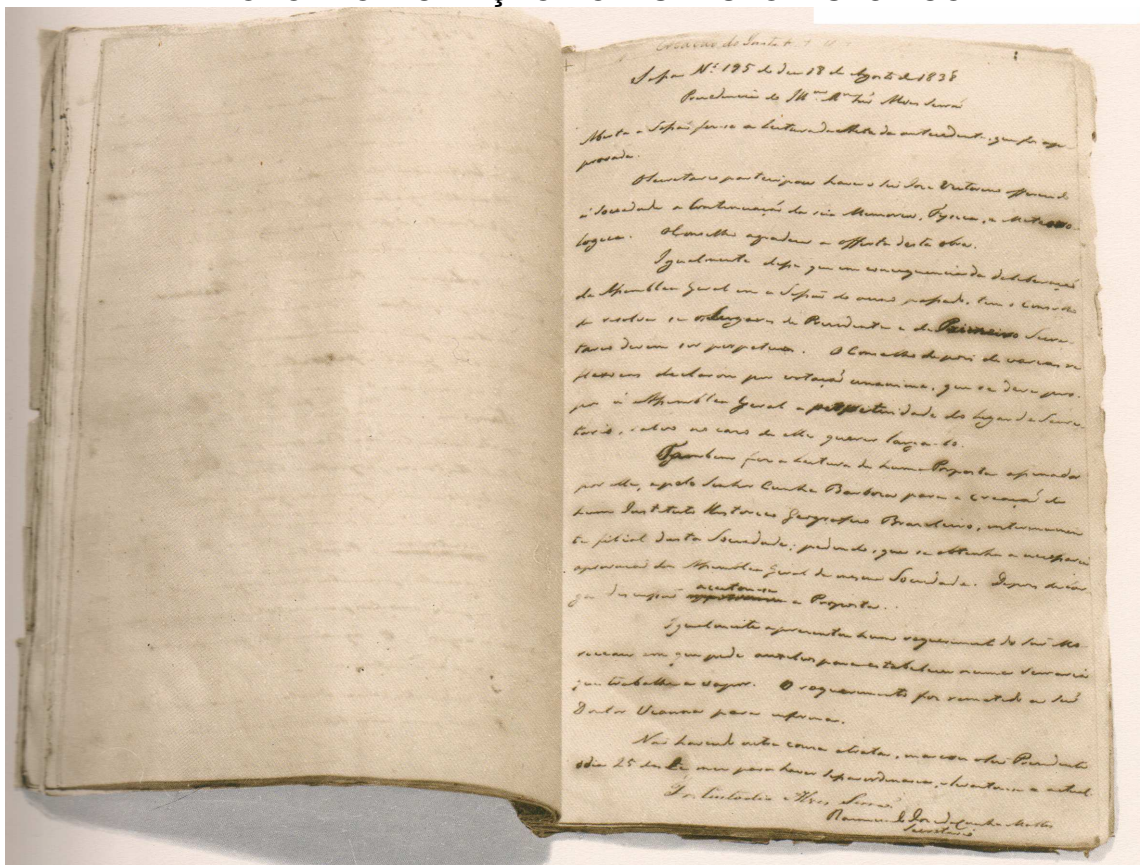 Creação do Instituto
Sessão Nº 195 do dia 18 de Agosto de 1838
Presidencia do Alves Serrão
Aberta a Sessão fez-se a leitura da Acta da antecedente, que foi ap-
provada.
O Secretario participou haver o Snr José Victorino
á Sociedade a Continuação da sua Memoria, Fysica, e Meteoro-
logica. O Conselho agradeceu a offerta desta obra.
Igualmente disse que em consequencia da deliberação
da Assemblea Geral em a Sessão do mez passado, tem o Conselho
de resolver se os Lugares de Presidente e de Primeiro Secre-
tario devem ser perpetuos. O Conselho depois de varias re-
flexoens declarou por votação unanime, que se deve pro-
por á Assemblea Geral a perpetuidade do lugar de Secre-
tario, salvo no caso de elle querer larga-lo.
Tambem fez a leitura de huma Proposta assinada
por elle, e pelo Senhor Cunha Barbosa para a creação de
hum Instituto Historico Geografico Brasileiro,
filial desta Sociedade; pedindo, que se obtenha a
approvação da Assemblea Geral da nossa Sociedade. Depois de lar-
ga discussão aceitou-se a Proposta.
Igualmente apresentou hum requerimento do Snr
em que pede para estabelecer numa serraria
que trabalhe a vapor. O requerimento foi remetido ao Snr
Doutor para informar.
Não havendo outra cousa a tratar, marcou o Snr Presidente
o dia 25 deste mez para haver Sessão ordinaria, e levantou-se a actual
Fr. Custodio Alves Serrão
Raimundo José da Cunha Mattos
Secretario